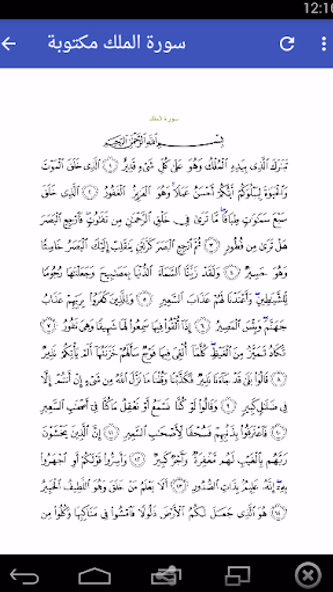 12:16
سورة الملك مكتوبة
سورة الملك
بِسْمِ اللَّهِ الرَّحْمَٰنِ الرَّحِيمِ
تَبَارَكَ الَّذِي بِيَدِهِ الْمُلْكُ وَهُوَ عَلَىٰ كُلِّ شَيْءٍ قَدِيرٌ ﴿١﴾ الَّذِي خَلَقَ الْمَوْتَ
وَالْحَيَاةَ لِيَبْلُوَكُمْ أَيُّكُمْ أَحْسَنُ عَمَلًا ۚ وَهُوَ الْعَزِيزُ الْغَفُورُ ﴿٢﴾ الَّذِي خَلَقَ
سَبْعَ سَمَاوَاتٍ طِبَاقًا ۖ مَّا تَرَىٰ فِي خَلْقِ الرَّحْمَٰنِ مِن تَفَاوُتٍ ۖ فَارْجِعِ الْبَصَرَ
هَلْ تَرَىٰ مِن فُطُورٍ ﴿٣﴾ ثُمَّ ارْجِعِ الْبَصَرَ كَرَّتَيْنِ يَنقَلِبْ إِلَيْكَ الْبَصَرُ خَاسِئًا
وَهُوَ حَسِيرٌ ﴿٤﴾ وَلَقَدْ زَيَّنَّا السَّمَاءَ الدُّنْيَا بِمَصَابِيحَ وَجَعَلْنَاهَا رُجُومًا
لِّلشَّيَاطِينِ ۖ وَأَعْتَدْنَا لَهُمْ عَذَابَ السَّعِيرِ ﴿٥﴾ وَلِلَّذِينَ كَفَرُوا بِرَبِّهِمْ عَذَابُ
جَهَنَّمَ ۖ وَبِئْسَ الْمَصِيرُ ﴿٦﴾ إِذَا أُلْقُوا فِيهَا سَمِعُوا لَهَا شَهِيقًا وَهِيَ تَفُورُ ﴿٧﴾
تَكَادُ تَمَيَّزُ مِنَ الْغَيْظِ ۖ كُلَّمَا أُلْقِيَ فِيهَا فَوْجٌ سَأَلَهُمْ خَزَنَتُهَا أَلَمْ يَأْتِكُمْ نَذِيرٌ
﴿٨﴾ قَالُوا بَلَىٰ قَدْ جَاءَنَا نَذِيرٌ فَكَذَّبْنَا وَقُلْنَا مَا نَزَّلَ اللَّهُ مِن شَيْءٍ إِنْ أَنتُمْ إِلَّا
فِي ضَلَالٍ كَبِيرٍ ﴿٩﴾ وَقَالُوا لَوْ كُنَّا نَسْمَعُ أَوْ نَعْقِلُ مَا كُنَّا فِي أَصْحَابِ السَّعِيرِ
﴿١٠﴾ فَاعْتَرَفُوا بِذَنبِهِمْ فَسُحْقًا لِّأَصْحَابِ السَّعِيرِ ﴿١١﴾ إِنَّ الَّذِينَ يَخْشَوْنَ
رَبَّهُم بِالْغَيْبِ لَهُم مَّغْفِرَةٌ وَأَجْرٌ كَبِيرٌ ﴿١٢﴾ وَأَسِرُّوا قَوْلَكُمْ أَوِ اجْهَرُوا
بِهِ ۖ إِنَّهُ عَلِيمٌ بِذَاتِ الصُّدُورِ ﴿١٣﴾ أَلَا يَعْلَمُ مَنْ خَلَقَ وَهُوَ اللَّطِيفُ الْخَبِيرُ
﴿١٤﴾ هُوَ الَّذِي جَعَلَ لَكُمُ الْأَرْضَ ذَلُولًا فَامْشُوا فِي مَنَاكِبِهَا وَكُلُوا مِن